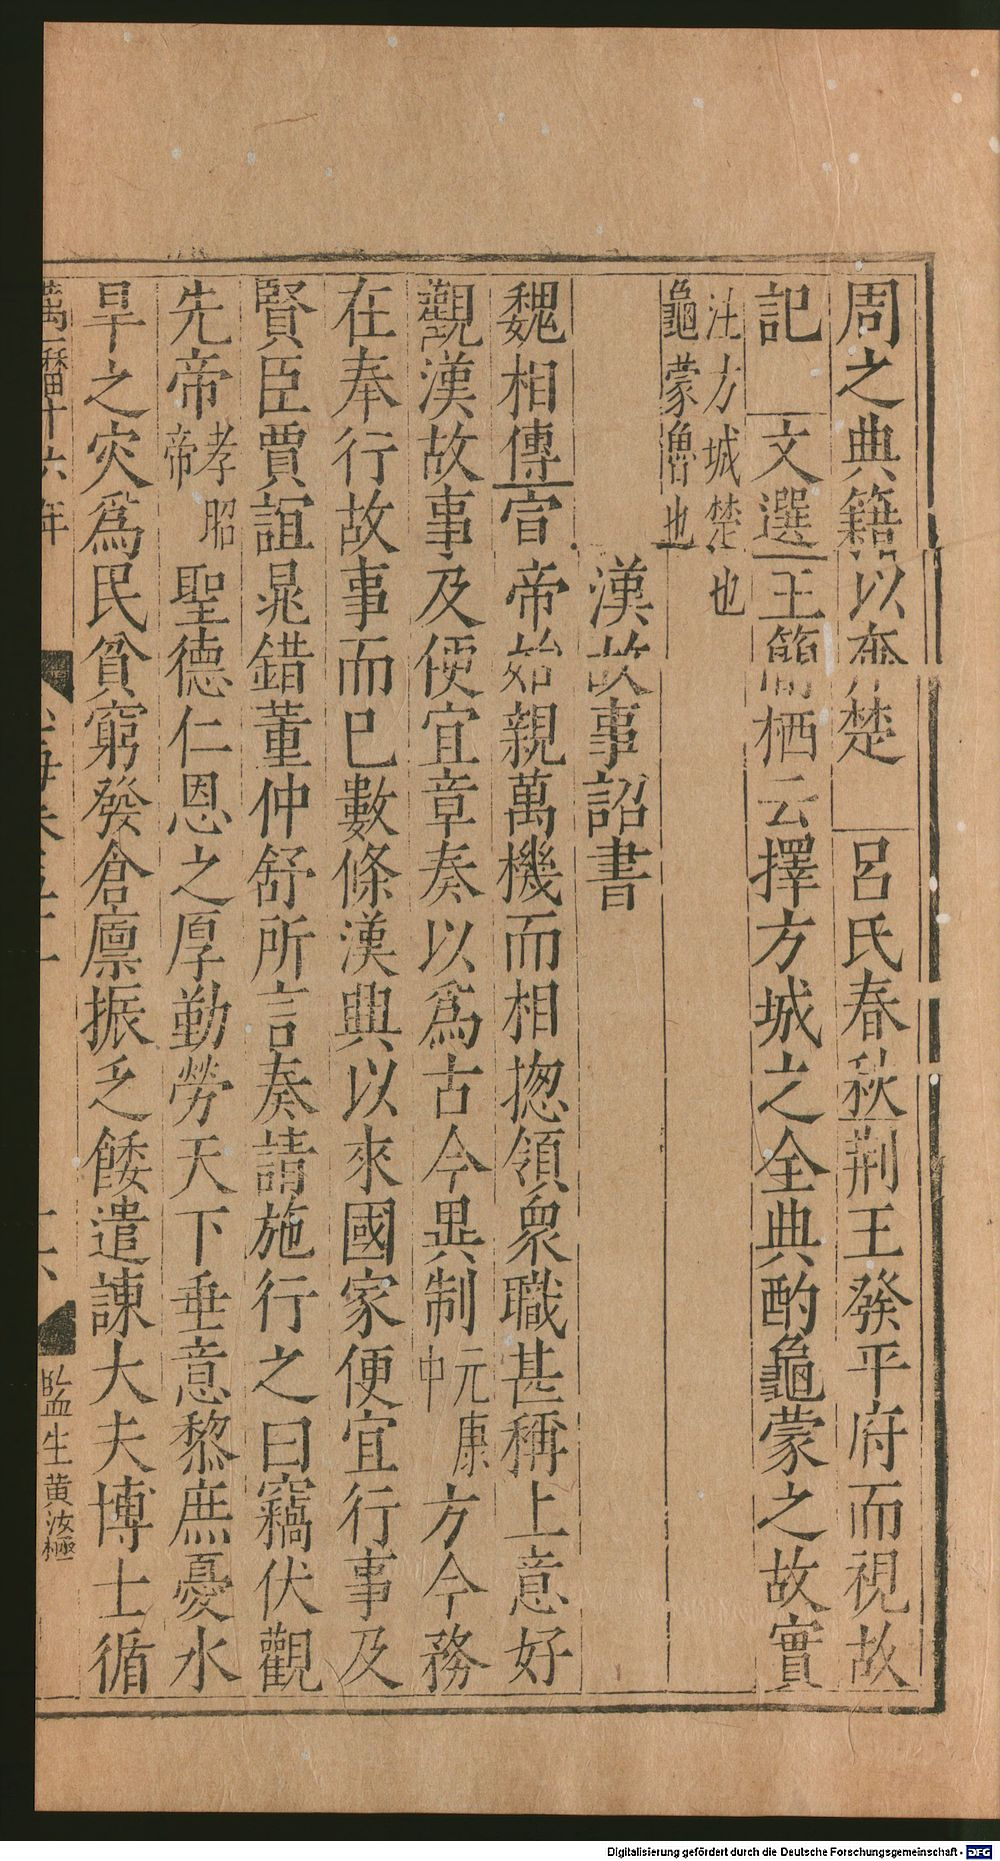 周之典籍以奔楚　呂氏春秋荆王發平府而視故
記　文選王簡栖云擇方城之全典酌龜蒙之故實
注方城楚也
龜蒙魯也
漢故事詔書
魏相傳宣帝始親萬機而相揔領衆職甚稱上意好
觀漢故事及便宜章奏以爲古今異制元康中方今務
在奉行故事而已數條漢興以來國家便宜行事及
賢臣賈誼晁錯董仲舒所言奏請施行之曰竊伏觀
先帝孝昭帝聖德仁恩之厚勤勞天下垂意黎庶憂水
旱之灾爲民貧窮發倉廪振乏餧遣諫大夫博士循
萬曆十六年
監生黄汝極
Digitalisierung gefördert durch die Deutsche Forschungsgemeinschaft - DFG